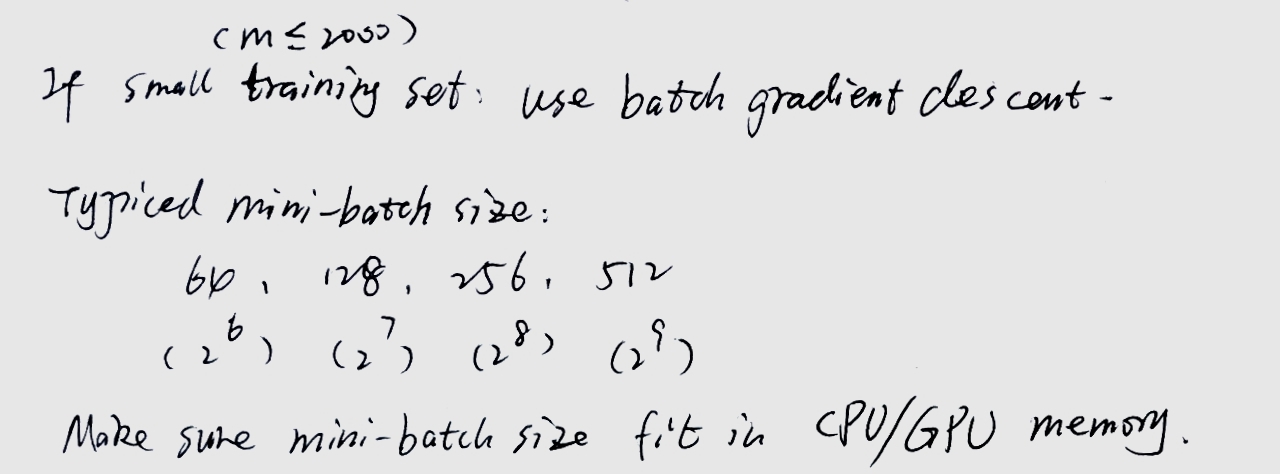 (m ≤ 2000)
If small training set: use batch gradient descent.
Typical mini-batch size:
64, 128, 256, 512
(2^6) (2^7) (2^8) (2^9)
Make sure mini-batch size fit in CPU/GPU memory.